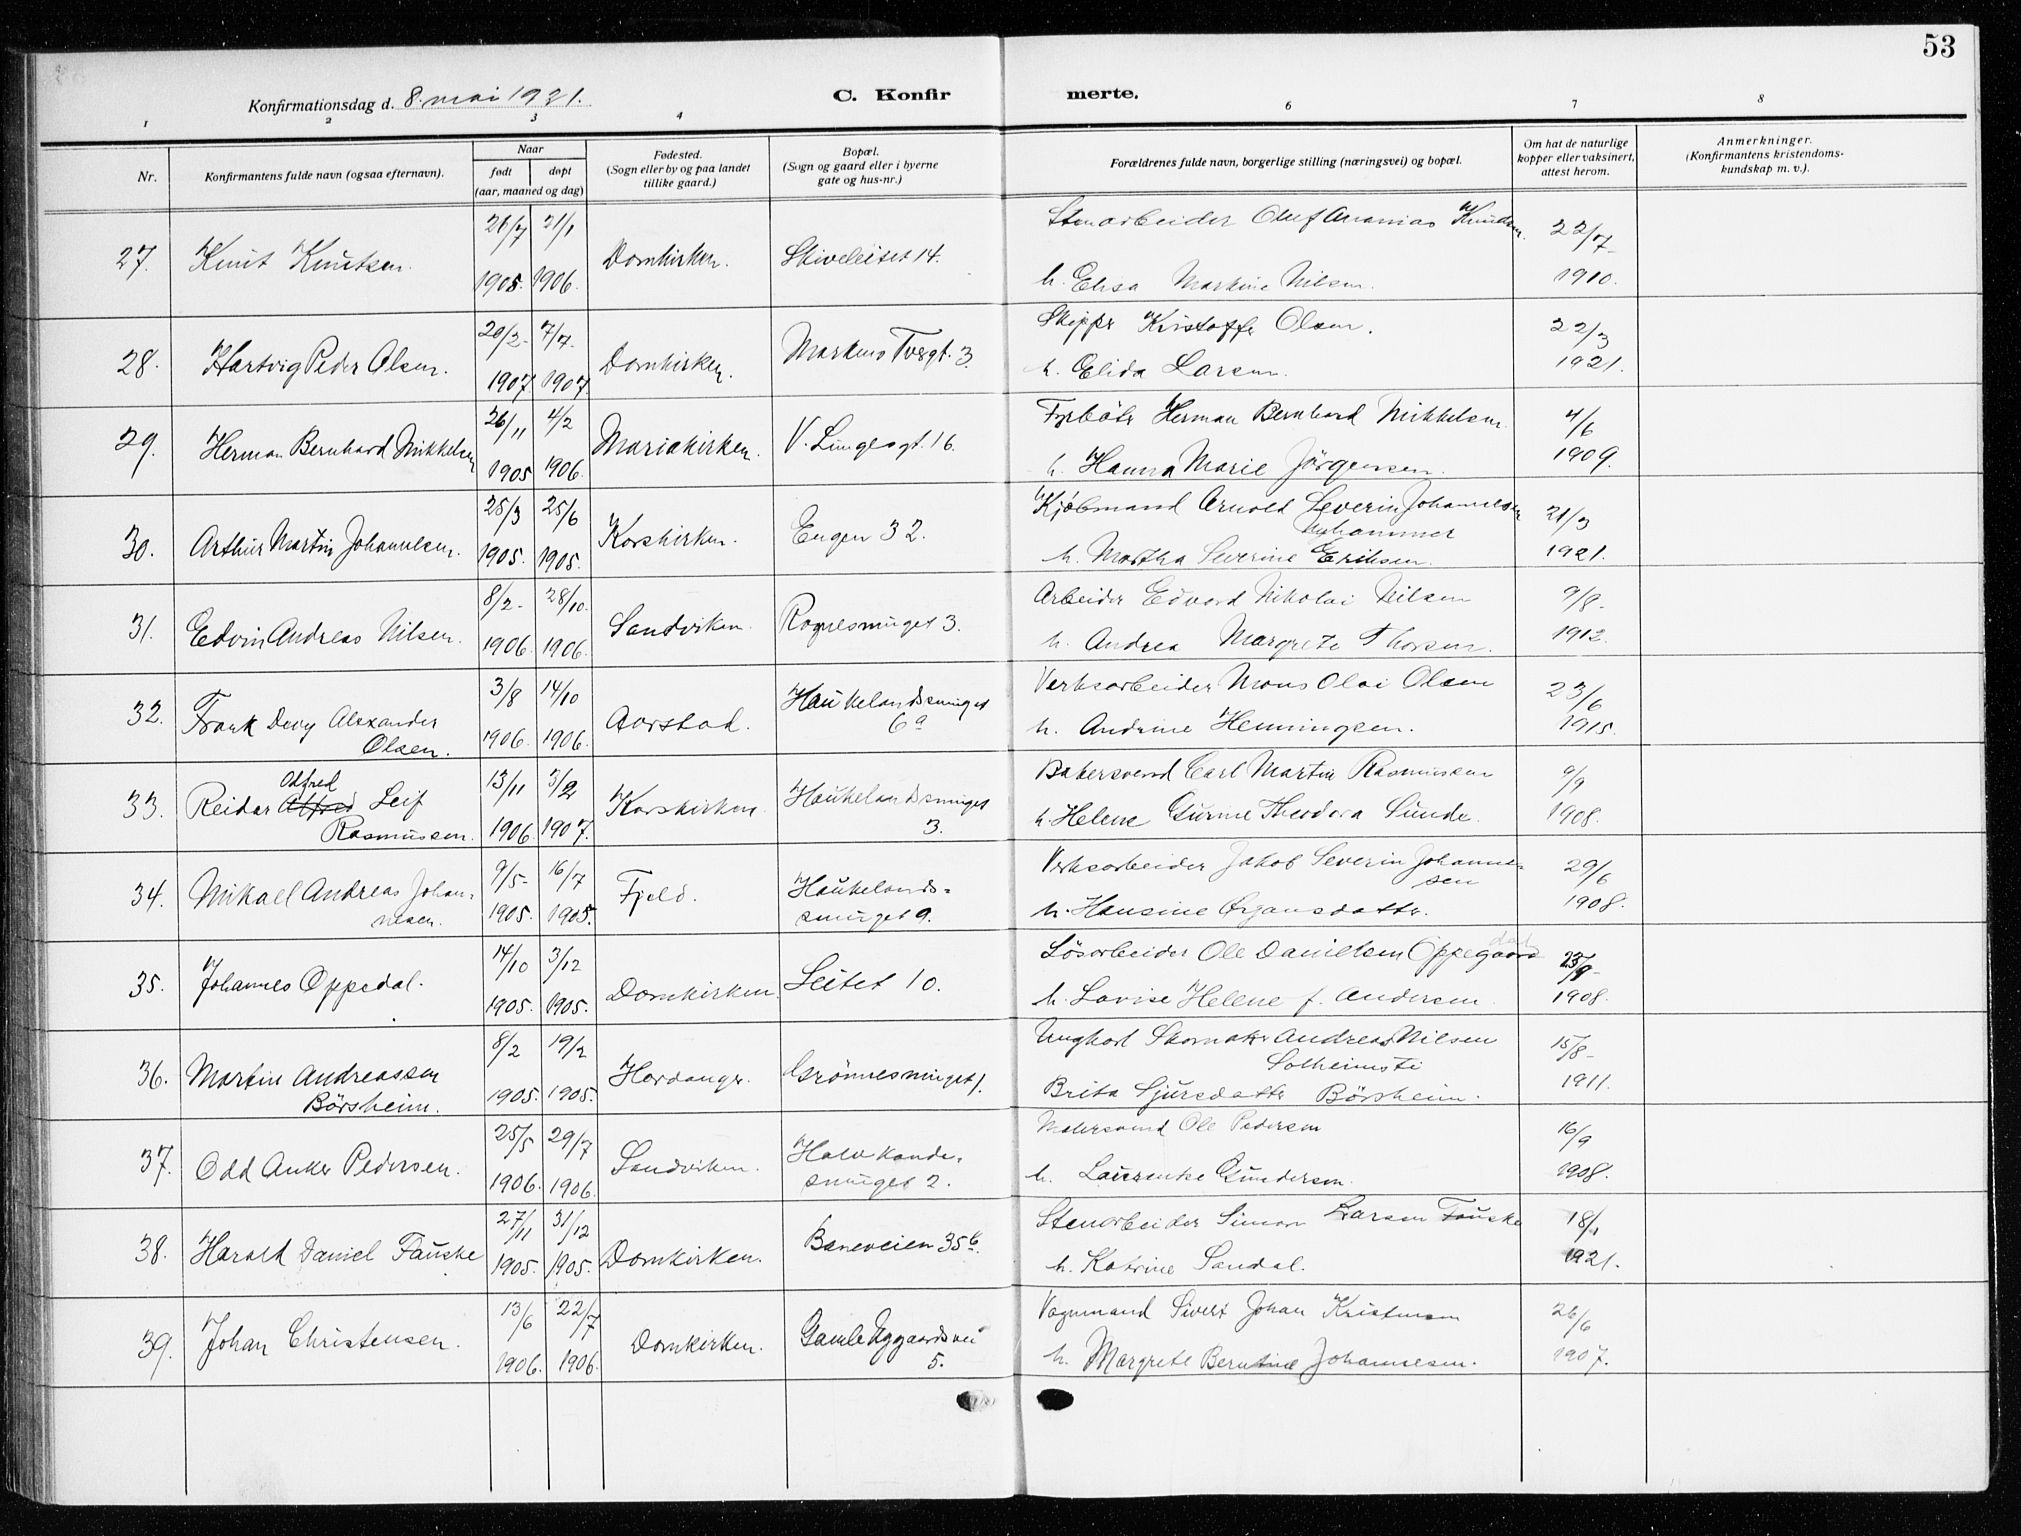 53
Konfirmationsdag d. 8. mai 1921.
C. Konfirmerte.
1 2 3 4 6 7 8
Nr.
Konfirmantens fulde navn (ogsaa efternavn).
Naar
født døpt
(aar, maaned og dag)
Fødested.
(Sogn eller by og paa landet
tillike gaard.)
Bopæl.
(Sogn og gaard eller i byerne
gate og hus-nr.)
Forældrenes fulde navn, borgerlige stilling (næringsvei) og bopæl.
Om hat de naturlige
kopper eller vaksinert,
attest herom.
Anmerkninger.
(Konfirmantens kristendoms-
kundskap m. v.).
26/7 21/1 Stenarbeider Oluf Ananias Knudsen.
27. Knut Knutsen. Domkirken. Skiveleitet 14. 22/7
1905. 1906. h. Elisa Markine Nilsen. 1910.
20/2- 7/7- Skipper Kristoffer Olsen. 22/3
28. Hartvig Peder Olsen. Domkirken. Markens Tvergt. 3.
1907 1907 h. Elida Larsen. 1921.
26/11 4/2 Fyrbøter Herman Bernhard Mikkelsen. 4/6
29. Herman Bernhard Mikkelsen Mariakirken. V. Lungesgt. 16.
1905 1906. h. Hanna Marie Jörgensen. 1909.
25/3 25/6 Kjøbmand Arnold Severin Johannesen 21/3
30. Arthur Martin Johannesen. Korskirken. Engen 32.
1905. 1905. h. Martha Severine Eriksen. 1921.
8/2- 28/10. Arbeider Edvard Nikolai Nilsen 9/8-
31. Edvin Andreas Nilsen. Sandviken. Rognesmuget 3.
1906. 1906. h. Andrea Margrete Thorsen. 1912.
3/8 14/10 Haukelandssmuget Verksarbeider Mons Olai Olsen 23/6
32. Frank Devy Alexander Aarstad. 6a
Olsen. 1906. 1906. h. Andrine Henningsen. 1915.
Odfred 13/11 3/2 Bakersvend Carl Martin Rasmussen 9/9
33. Reidar Alfred Leif Korskirken. Haukelandssmuget
Rasmussen. 1906. 1907. 3. h. Helene Gurine Theodora Sunde. 1908.
9/5- 16/7 Verksarbeider Jakob Severin Johannes-
sen 29/6
34. Mikael Andreas Johan- Fjeld. Haukelands-
nesen. 1905. 1905. smuget 9. h. Hansine Ørjansdatter. 1908.
14/10 3/12 Løsarbeider Ole Danielsen Oppegaard 23/9-
35. Johannes Oppedal. Domkirken. Leitet 10.
1905. 1905. h. Lovise Helene f. Andersen 1908.
8/2 19/2 Ungkarl Skomaker Andreas Nilsen 15/8-
Solheimsti
36. Martin Andreassen Hardanger. Grönnesmuget 1.
Börsheim. 1905. 1905. Brita Sjursdatter Börsheim. 1911.
25/5 29/7 Malersvend Ole Pedersen 16/9
37. Odd Anker Pedersen. Sandviken. Halvkande-
1906. 1906. smuget 2. h. Laurentse Gundersen. 1908.
27/11 31/12 Stenarbeider Simon Larsen Fauske 18/1
38. Harald Daniel Fauske Domkirken. Baneveien 35b.
1905. 1905. h. Katrine Sandal. 1921.
13/6 22/7 Vognmand Sivert Johan Kristensen 26/6
39. Johan Christensen. Domkirken. Gamle Nygaardsvei
1906. 1906. 5. h. Margrete Berntine Johannesen. 1907.